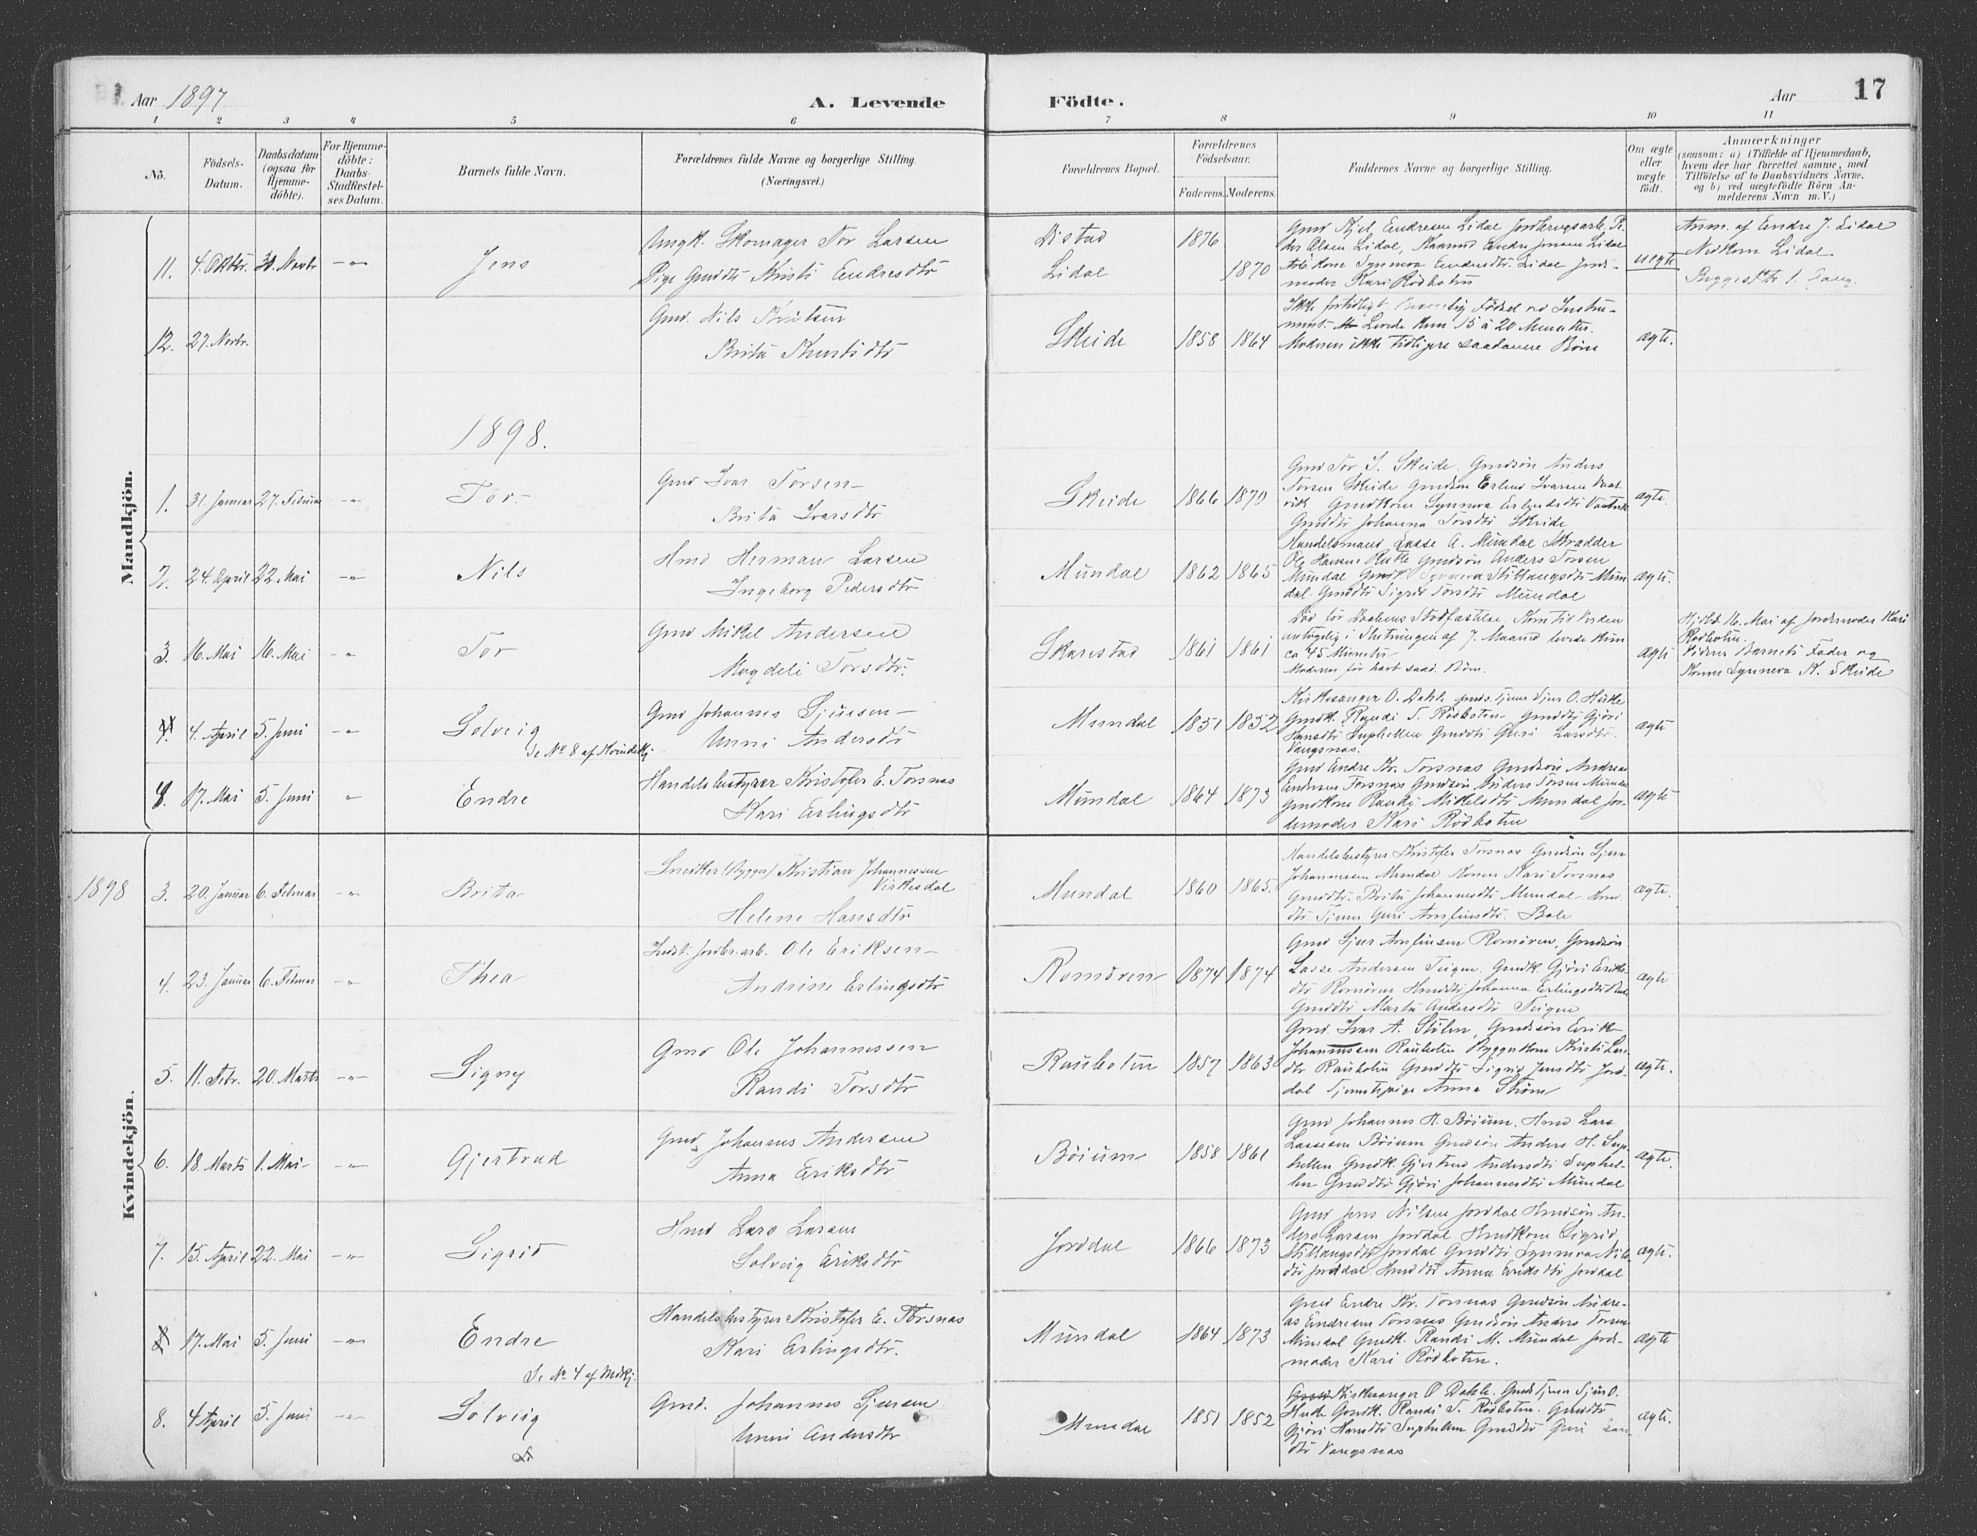 Aar 1897
A. Levende
Födte.
Aar
17
1 2 3 4 5 6 7 8 9 10 11
No.
Födsels-
Datum.
Daabsdatum
(ogsaa for
Hjemme-
döbte).
For Hjemme-
döbte:
Daabs-
Stadfæstel-
ses Datum.
Barnets fulde Navn.
Forældrenes fulde Navne og borgerlige Stilling.
(Næringsvei.)
Forældrenes Bopæl.
Forældrenes
Födselsaar.
Faderens. Moderens.
Faddernes Navne og borgerlige Stilling.
Om ægte
eller
uægte
födt.
Anmærkninger
(saasom: a) i Tilfælde af Hjemmedaab,
hvem der har forrettet samme, med
Tilföielse af to Daabsvidners Navne,
og b) ved uægtefödte Börn An-
melderens Navn m. V.)
Mandkjön.
11. 4. Oktbr. Novbr Jens
Ungk. Skomager Tor Larsen
Pige Gmdtr Kristi Endresdtr
Distad
Lidal
1876
1870
Gmd Kjel Endresen Lidal
Olsen Lidal
Lidal
moder Kari Rödbotten
uægte
Anm. af Endre J. Lidal
Lidal
12. 27. Novbr.
Gmd. Nils Knutsen
Brita Knutsdtr
Skeide
1858 1864
Levede kun 15 à 20 Minuter.
Moderen ikke tidligere saadanne Börn
ægte.
1898.
1. 31. Januar 27. Februar Tor
Gmd Ivar Torsen
Brita Ivarsdtr
Skeide
1866 1870
Gmd Tor I. Skeide. Gmdsön Anders
Torsen Skeide Gmdsön Erlend Ivarsen
Gmdkone Synneva Erlendsdtr
Gmddtr Johanna Torsdtr Skeide
ægte.
2. 24. April 22. Mai Nils
Hmd Herman Larsen
Ingeborg Pedersdtr
Mundal
1862 1865
Handelsmand Lasse A. Mundal Skrædder
Ole Hansen Gmdsön Anders Torsen
Mundal Gmdk. Synneva Stillaugsdtr Mun
dal Gmddtr Sigrid Torsdtr Mundal
ægte.
3. 16. Mai 16. Mai Tor
Gmd Mikel Andersen
Magdeli Torsdtr.
Skarestad
1861 1861
Död för Daabens Stadfæstelse, Kom til Verden
antagelig i Slutningen af 7. Maaned levede kun
ca 45 Minuter
Moderen för havt saad. Börn.
ægte
Hjdbt 16. Mai af Jordemoder Kari
Rödbotten.
Vidner Barnets Fader og
Kone Synneva K. Skeide
4. 4. April 5. Juni Solveig
Se No 8 af Kvindekj.
Gmd Johannes Sjursen
Unni Andersdtr
Mundal
1851 1852
Kirkesanger O. Dahle Gmds. Tjener Sjur O.
Gmdk. Randi T. Rödbotten Gmddtr Gjöri
Hansdtr Suphellen Gmddtr Guri Larsdtr
Vangsnæs.
ægte
4. 17. Mai 5. Juni Endre
Handelsbestyrer Kristofer E. Torsnæs
Kari Erlingsdtr
Mundal
1864 1873
Gmd Endre Kr. Torsnæs Gmdsön Andreas
Endresen Torsnæs Gmdsön Anders Torsen Mundal
Gmdkone Randi Mikelsdtr Mundal Jor-
demoder Kari Rödbotten
ægte
Kvindekjön.
1898
3. 20. Januar 6. Februar Brita
Snedker (Bygger) Kristian Johannessen
Virkesdal
Helene Hansdtr
Mundal
1860 1865.
Handelsbestyrer Kristofer Torsnæs Gmdsön Sjur
Johannessen Mundal Konen Kari Torsnæs
Gmddtr. Brita Johannesdtr Mundal
Guri Arnfinsdtr. Bale
ægte.
4. 23. Januar 6. Februar Thea
Ole Eriksen
Andrine Erlingsdtr
Romören
1874 1874
Gmd Sjur Arnfinsen Romören, Gmdsön
Lasse Andersen Teigen. Gmdk. Gjöri Eriks-
dtr Romören Hmddtr Johanna Erlingsdtr
Gmddtr Marta Andersdtr Teigen
ægte
5. 11. Febr. 20. Marts Signy
Gmd Ole Johannessen
Randi Torsdtr
Rauboten
1857 1863
Gmd Ivar A. Stölen, Gmdsön Erik
Johannessen Rauboten Byggerkone Kristi Lars
dtr Rauboten Gmddtr Sigrid Jensdtr Jord-
dal Tjenestepige Anna
ægte.
6. 18. Marts 1. Mai Gjertrud
Gmd Johannes Andersen
Anna Eriksdtr
Böium
1858 1861
Gmd Johannes H. Böium, Hmd Lars
Lassesen Böium Gmdsön Anders H. Sup-
hellen Gmdk. Gjertrud Andersdtr Suphel-
len Gmddtr Gjöri Johannesdtr Mundal
ægte.
7. 15. April 22. Mai Sigrid
Hmd Lars Larsen
Solveig Eriksdtr
Jorddal
1866 1873
Gmd Jens Nilsen Jorddal Hmdsön An-
ders Larsen Jorddal Hmdkone Sigrid
Stillaugsdtr Jorddal Gmddtr Synneva Nils
dtr Jorddal Hmddtr Anna Eriksdtr Jorddal
ægte.
8. 17. Mai 5. Juni Endre
Se No 4 af Mdkj.
Handelsbestyrer Kristofer E. Torsnæs
Kari Erlingsdtr.
Mundal
1864 1873
Gmd Endre Kr. Torsnæs Gmdsön Andre-
as Endresen Torsnæs Gmdsön Anders Torsen
Mundal Gmdk. Randi M. Mundal Jord-
moder Kari Rödbotten.
ægte
8. 4 April 5. Juni Solveig
Gmd. Johannes Sjursen
Unni Andersdtr
Mundal
1851 1852
Kirkesanger O Dahle. Gmds Tjener Sjur O.
Gmdk. Randi T. Rödbotten. Gmddtr
Gjöri Hansdtr Suphellen Gmddtr Guri Lars
dtr Vangsnæs
ægte.